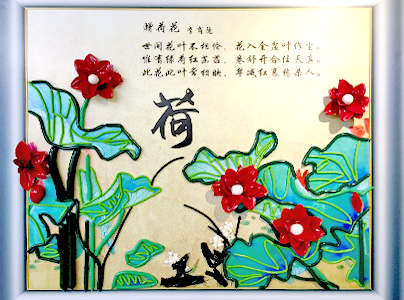 赠荷花 李商隐
世间花叶不相伦，花入金盆叶作尘。
惟有绿荷红菡萏，卷舒开合任天真。
此花此叶常相映，翠减红衰愁杀人。
荷